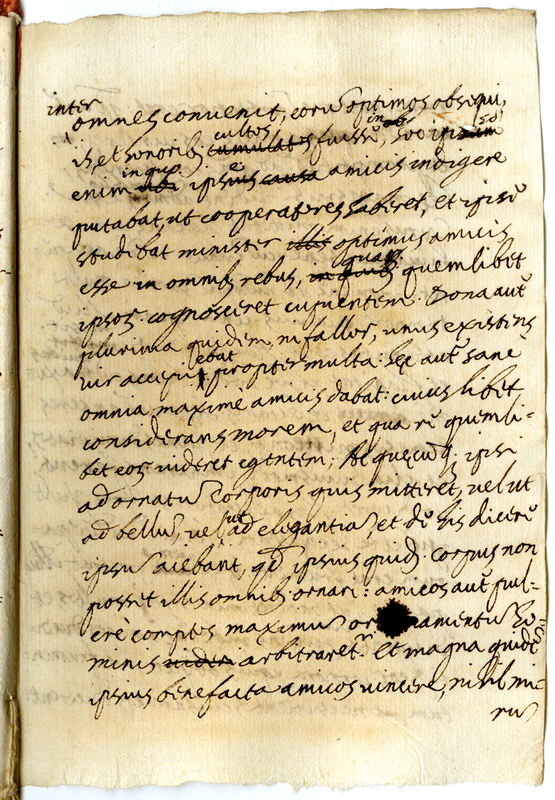 inter
omnes convenit, eorũ optimos obsequi,
cultos
is, et honorib; cumulatos fuisse, hoc ipsum
in quo ei
enim ubi ipsius causa amicis indigere
putabat, ut cooperatores haberet, et ipse
studebat minister illis optimus amicis
quar
esse in omnib; rebus, in quib; quemlibet
ipsor. cognosceret cupientem. Dona aut̃
plurima quidem, ni fallor, unus existens
ebat
vir accepit propter multa: hęc aut̃ sane
omnia maxime amicis dabat: cuius libet
considerans morem, et qua rẽ quemli-
bet eor. videret egentem; At quęcũq; ipsi
ad ornatũ corporis quis mitteret, vel ut
ut
ad bellũ, vel ad elegantiã, et dẽ his dicere
ipsũ aiebant, qd̃ ipsius quid. corpus non
posset illis omnib; ornari: amicos aut̃ pul-
crè comptos maximũ ornamentũ ho-
minis videri arbitraret. Et magna quidẽ
ipsius benefacta amicos vincere, nihil mi-
rũ